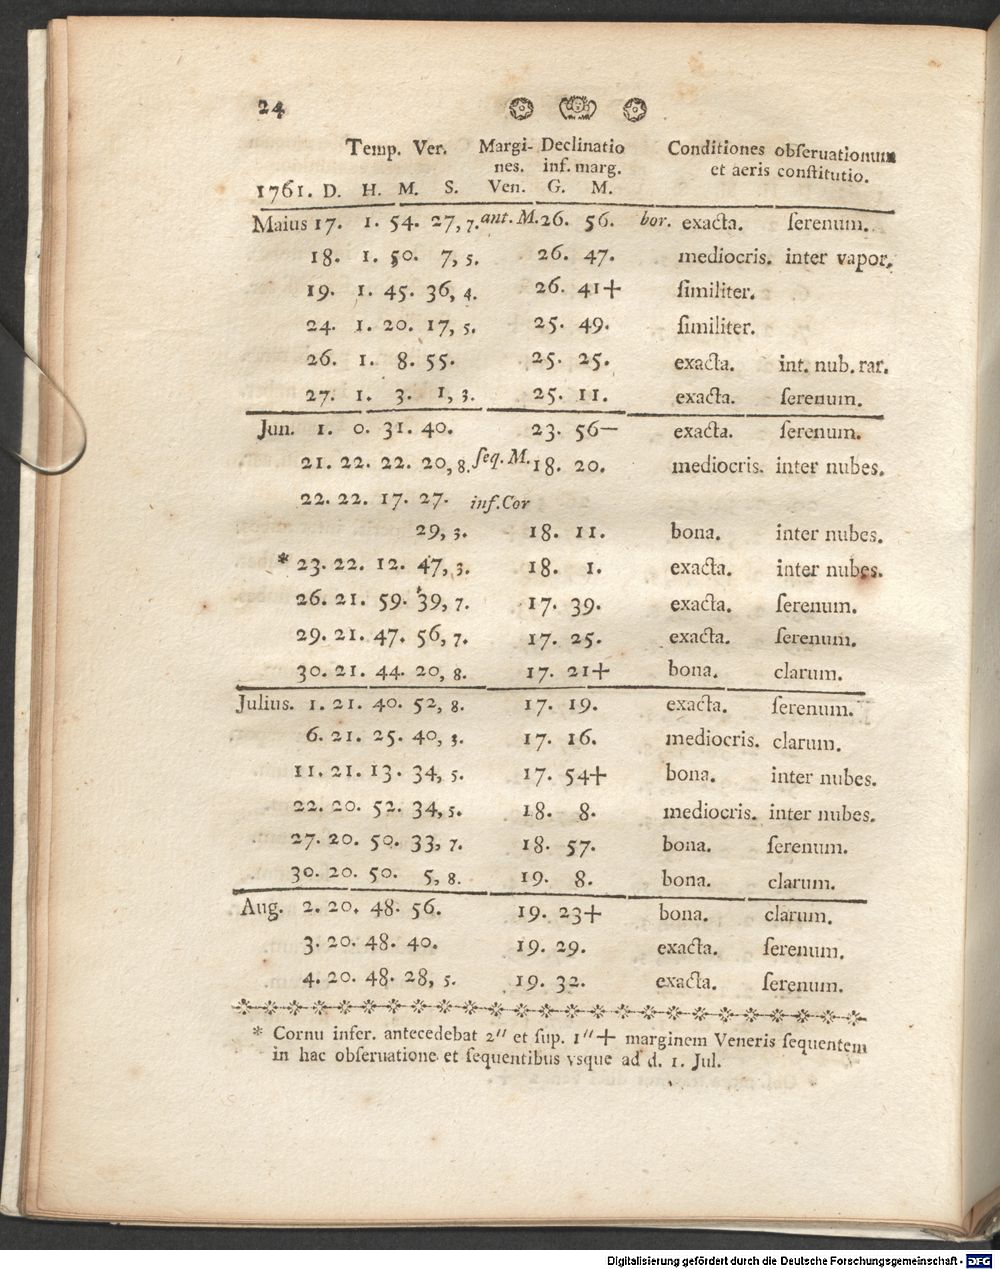 24
Temp. Ver. Margi- Declinatio Conditiones obſeruationum
nes. inf. marg. et aeris conſtitutio.
1761. D. H. M. S. Ven. G. M.
Maius 17. 1. 54. 27, 7. ant. M. 26. 56. bor. exacta. ſerenum.
18. 1. 50. 7, 5. 26. 47. mediocris. inter vapor.
19. 1. 45. 36, 4. 26. 41+ ſimiliter.
24. 1. 20. 17, 5. 25. 49. ſimiliter.
26. 1. 8. 55. 25. 25. exacta. int. nub. rar.
27. 1. 3. 1, 3. 25. 11. exacta. ſerenum.
Jun. 1. 0. 31. 40. 23. 56— exacta. ſerenum.
21. 22. 22. 20, 8. ſeq. M. 18. 20. mediocris. inter nubes.
22. 22. 17. 27. inf. Cor
29, 3. 18. 11. bona. inter nubes.
* 23. 22. 12. 47, 3. 18. 1. exacta. inter nubes.
26. 21. 59. 39, 7. 17. 39. exacta. ſerenum.
29. 21. 47. 56, 7. 17. 25. exacta. ſerenum.
30. 21. 44. 20, 8. 17. 21+ bona. clarum.
Julius. 1. 21. 40. 52, 8. 17. 19. exacta. ſerenum.
6. 21. 25. 40, 3. 17. 16. mediocris. clarum.
11. 21. 13. 34, 5. 17. 54+ bona. inter nubes.
22. 20. 52. 34, 5. 18. 8. mediocris. inter nubes.
27. 20. 50. 33, 7. 18. 57. bona. ſerenum.
30. 20. 50. 5, 8. 19. 8. bona. clarum.
Aug. 2. 20. 48. 56. 19. 23+ bona. clarum.
3. 20. 48. 40. 19. 29. exacta. ſerenum.
4. 20. 48. 28, 5. 19. 32. exacta. ſerenum.
* Cornu infer. antecedebat 2″ et ſup. 1″+ marginem Veneris ſequentem
in hac obſeruatione et ſequentibus vsque ad d. 1. Jul.
Digitalisierung gefördert durch die Deutsche Forschungsgemeinschaft - DFG